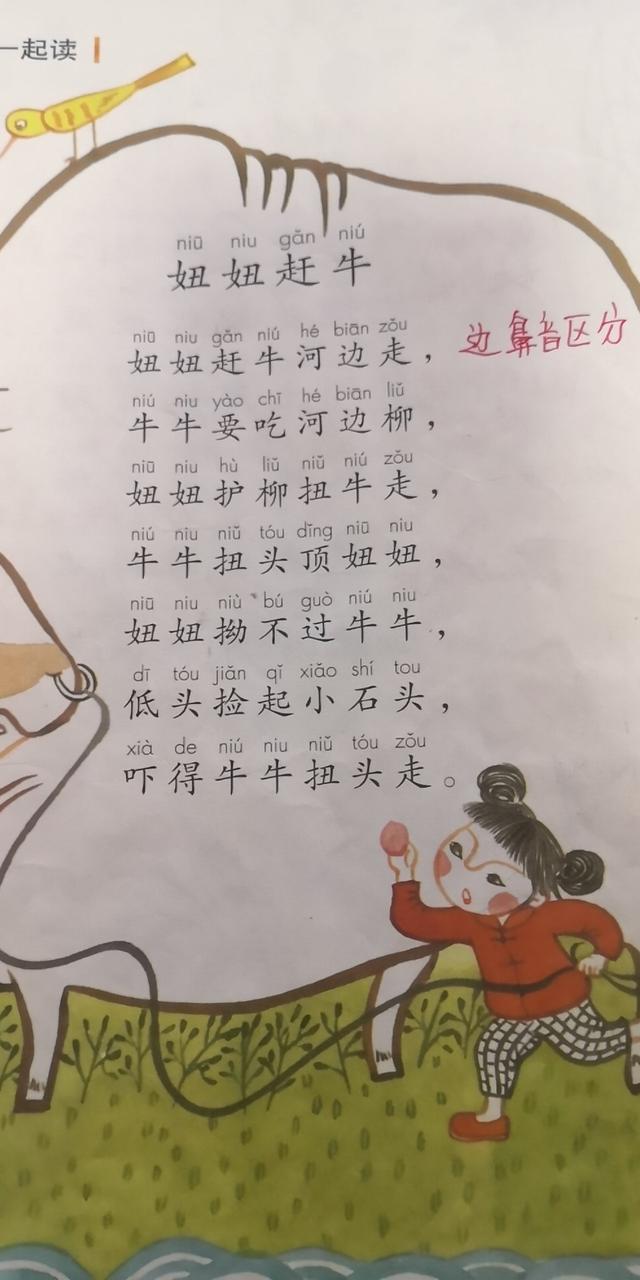 一起读
niū niu gǎn niú
妞妞赶牛
niū niu gǎn niú hé biān zǒu
妞妞赶牛河边走，
边鼻音区分
niú niu yào chī hé biān liǔ
牛牛要吃河边柳，
niū niu hù liǔ niǔ niú zǒu
妞妞护柳扭牛走，
niú niu niǔ tóu dǐng niū niu
牛牛扭头顶妞妞，
niū niu niù bú guò niú niu
妞妞拗不过牛牛，
dī tóu jiǎn qǐ xiǎo shí tou
低头捡起小石头，
xià de niú niu niǔ tóu zǒu
吓得牛牛扭头走。